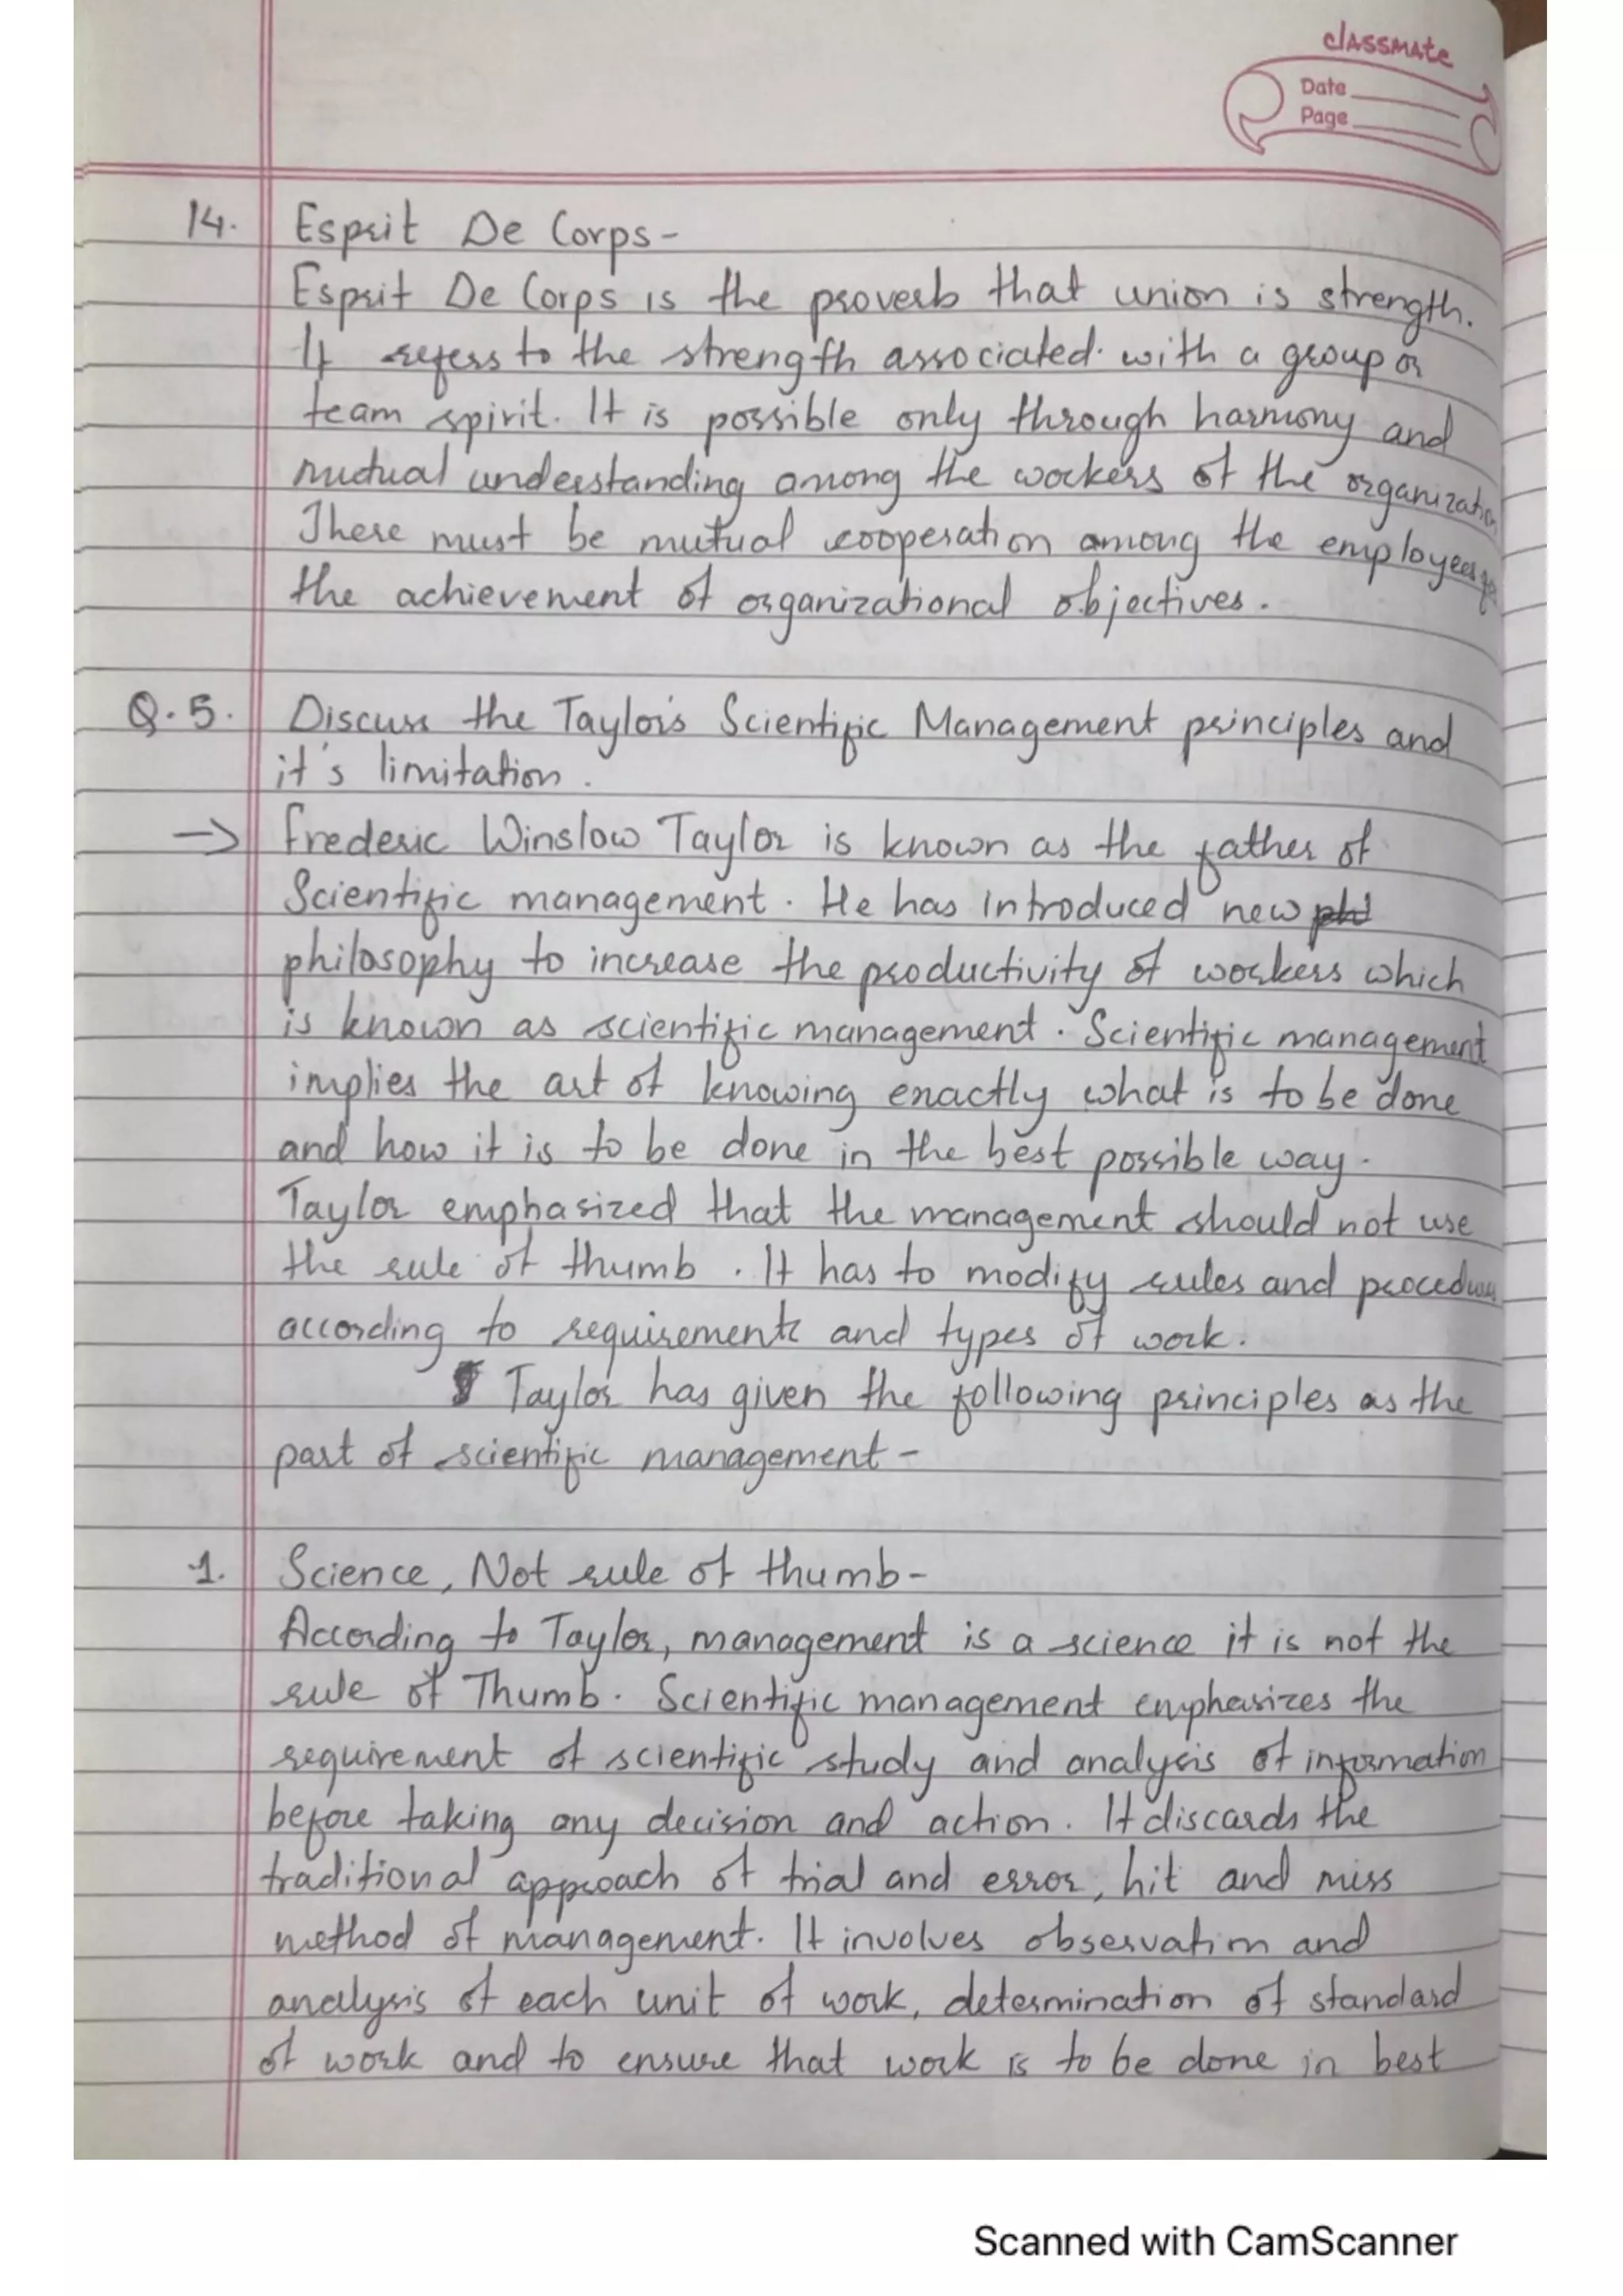 classmate
Date
Page
14. Esprit De Corps-
Esprit De Corps is the proverb that union is strength.
It refers to the strength associated with a group or
team spirit. It is possible only through harmony and
mutual understanding among the workers of the organization
There must be mutual cooperation among the employees for
the achievement of organizational objectives.
Q.5. Discuss the Taylor's Scientific Management principles and
it's limitation.
→ Frederic Winslow Taylor is known as the father of
Scientific management. He has introduced new
philosophy to increase the productivity of workers which
is known as scientific management. Scientific management
implies the art of knowing exactly what is to be done
and how it is to be done in the best possible way.
Taylor emphasized that the management should not use
the rule of thumb. It has to modify rules and procedures
according to requirements and types of work.
Taylor has given the following principles as the
part of scientific management-
1. Science, Not rule of thumb-
According to Taylor, management is a science it is not the
rule of Thumb. Scientific management emphasizes the
requirement of scientific study and analysis of information
before taking any decision and action. It discards the
traditional approach of trial and error, hit and miss
method of management. It involves observation and
analysis of each unit of work, determination of standard
of work and to ensure that work is to be done in best
Scanned with CamScanner